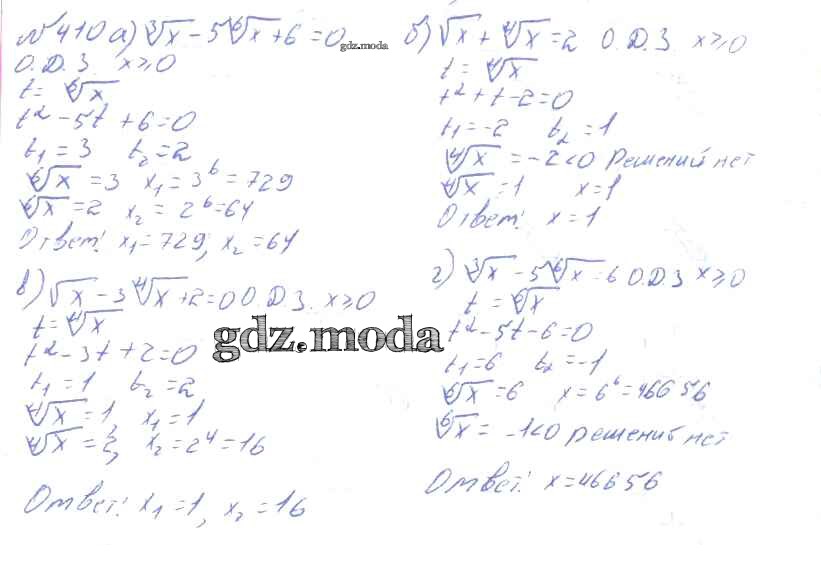 №410 а) ∛x - 5⁶√x + 6 = 0
gdz.moda
О.Д.З. x ≥ 0
t = ⁶√x
t² - 5t + 6 = 0
t₁ = 3 t₂ = 2
⁶√x = 3 x₁ = 3⁶ = 729
⁶√x = 2 x₂ = 2⁶ = 64
Ответ: x₁ = 729, x₂ = 64
б) √x + ⁴√x = 2 О.Д.З x ≥ 0
t = ⁴√x
t² + t - 2 = 0
t₁ = -2 t₂ = 1
⁴√x = -2 < 0 решений нет
⁴√x = 1 x = 1
Ответ: x = 1
в) √x - 3⁴√x + 2 = 0 О.Д.З. x ≥ 0
t = ⁴√x
t² - 3t + 2 = 0
t₁ = 1 t₂ = 2
⁴√x = 1, x₁ = 1
⁴√x = 2, x₂ = 2⁴ = 16
Ответ: x₁ = 1, x₂ = 16
gdz.moda
г) ∛x - 5⁶√x = 6 О.Д.З x ≥ 0
t = ⁶√x
t² - 5t - 6 = 0
t₁ = 6 t₂ = -1
⁶√x = 6 x = 6⁶ = 46656
⁶√x = -1 < 0 решений нет
Ответ: x = 46656